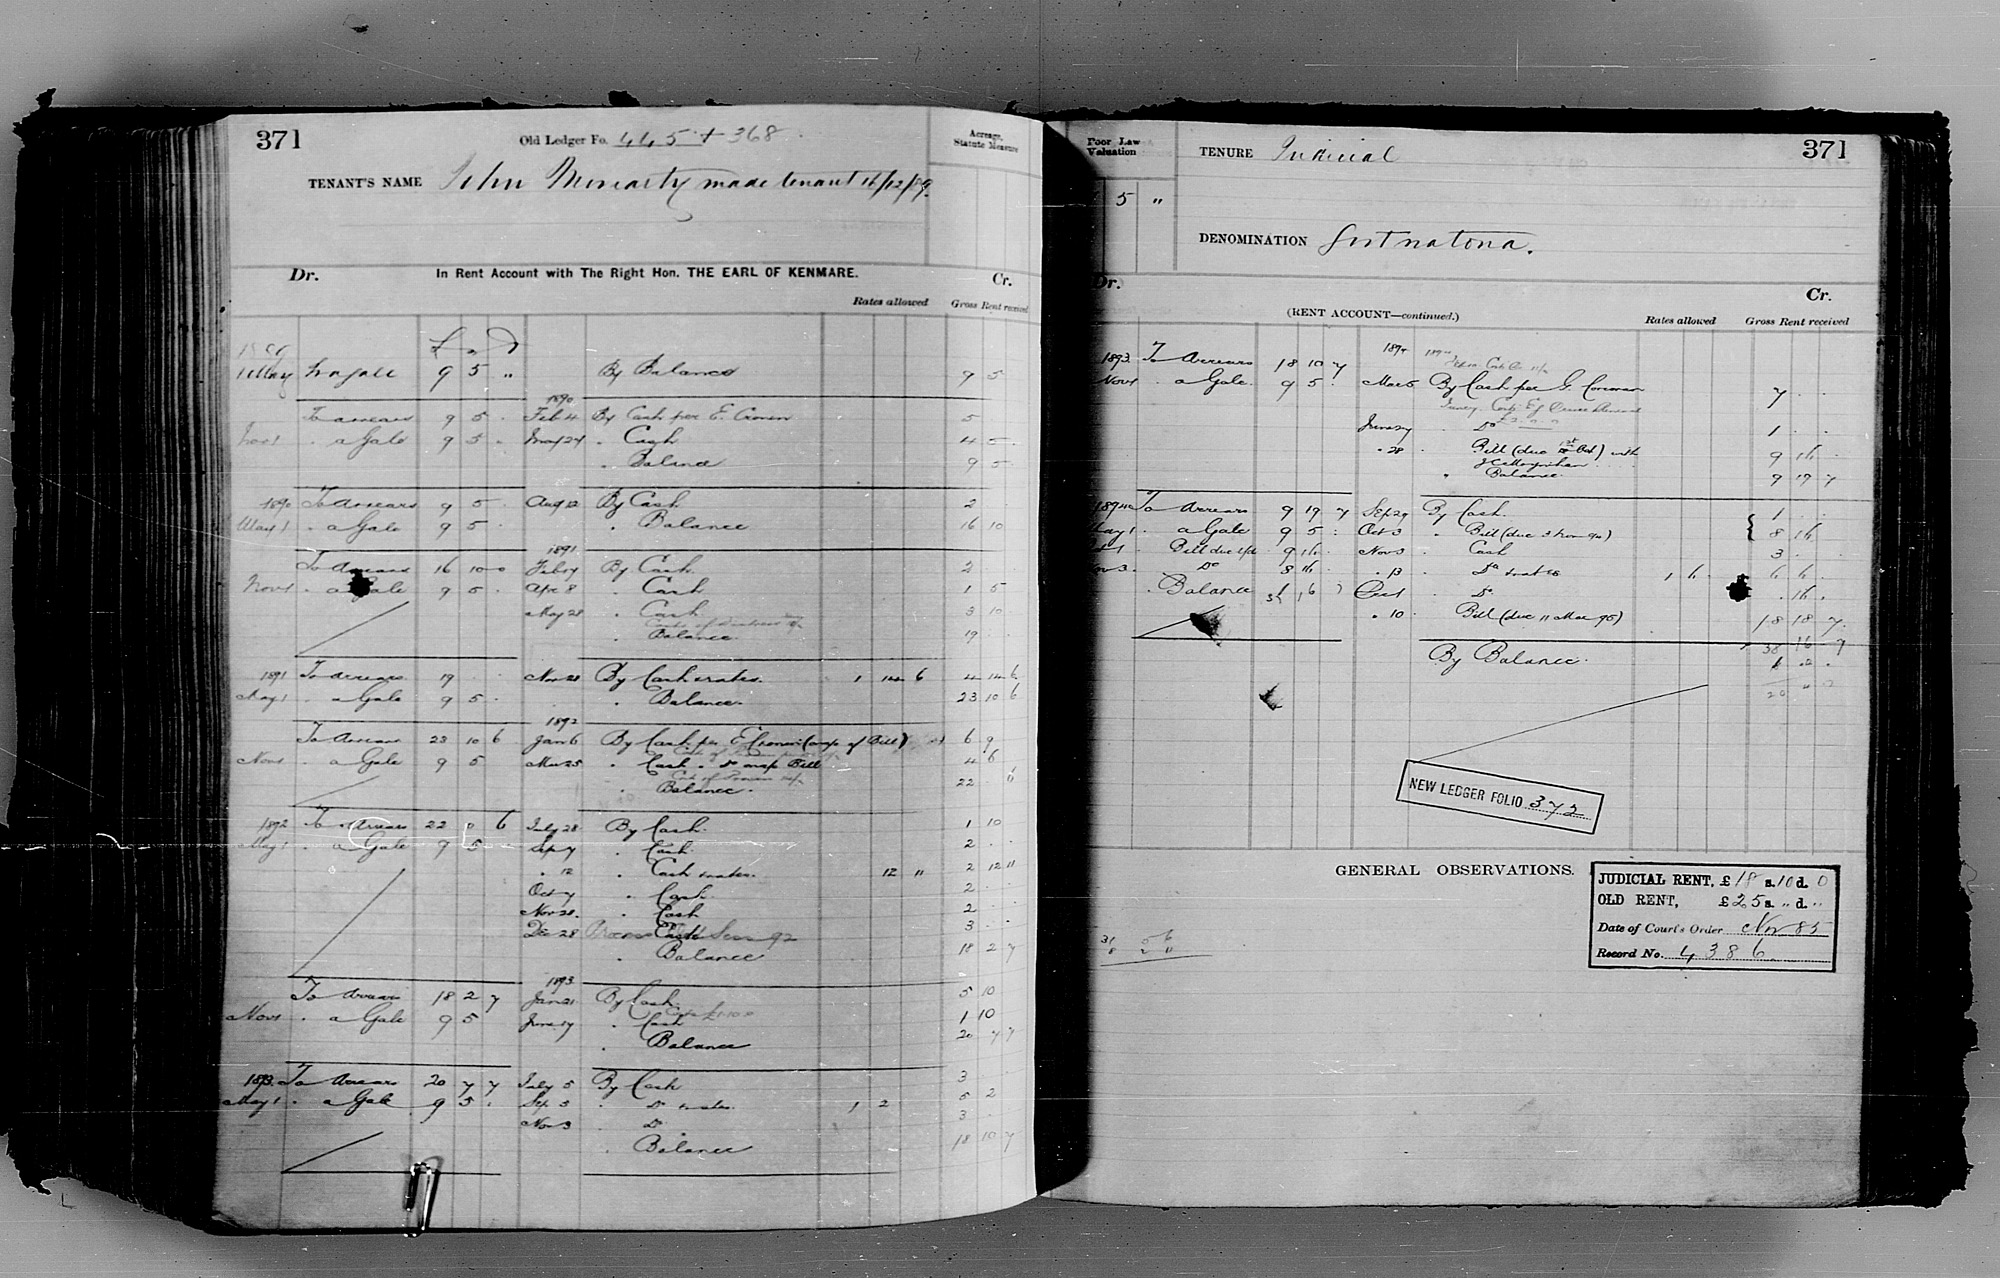 371
Old Ledger Fo. 445 + 368
Acreage, Statute Measure
TENANT'S NAME John Moriarty made tenant 16/12/89.
Dr. In Rent Account with The Right Hon. THE EARL OF KENMARE. Cr.
Rates allowed Gross Rent received
£ s d
1 May To a Gale 9 5 " By Balance 9 5
1890
To arrears 9 5 . Feb 4 By Cash per E. Cronin 5
Nov 1 . a Gale 9 5 . May 24 . Cash 4 5
. Balance 9 5
1890 To arrears 9 5 . Aug 12 By Cash 2
May 1 . a Gale 9 5 . Balance 16 10
1891
To arrears 16 10 0 Feb 17 By Cash 2
Nov 1 . a Gale 9 5 . Apr 8 . Cash 1 5
May 28 . Cash 3 10
. Balance 19
1891 To arrears 19 . Nov 21 By Cash & rates. 1 14 6 4 14 6
May 1 . a Gale 9 5 . . Balance. 23 10 6
1892
To arrears 23 10 6 Jan 6 By Cash per E Cronin (amp of Bill) 6 9
Nov 1 . a Gale 9 5 Mar 25 . Cash . Do amp Bill 4 6
. Balance. 22 . 6
1892 To arrears 22 0 6 July 28 By Cash. 1 10
May 1 . a Gale 9 5 . Sep 7 . Cash 2 . .
. 12 . Cash & rates. 12 " 2 12 11
Oct 7 . Cash 2 . .
Nov 20. . Cash 2 . .
Dec 28 Cash 3 .
. Balance 18 2 7
1893
To arrears 18 2 7 Jan 21 By Cash. 5 10
Nov 1 . a Gale 9 5 June 17 . Cash 1 10
. Balance 20 7 7
1893 To arrears 20 7 7 July 5 By Cash 3
May 1 . a Gale 9 5 . Sep 5 . Do & rates. 1 2 5 2
Nov 3 . Do 3
. Balance 18 10 7
Poor Law Valuation
TENURE Judicial 371
5 "
DENOMINATION Gortnatona.
Dr. (RENT ACCOUNT—continued.) Cr.
Rates allowed Gross Rent received
1894
1893 To arrears 18 10 7
Nov 1 . a Gale. 9 5 . Mar 5 By Cash per G Corcoran 7 . .
June 27 . Do 1 . .
. 28 Bill (due 1st Oct) with 9 16 .
J C Moynihan
" Balance. 9 19 7
1894 To arrears 9 19 7 Sep 29 By Cash. 1 . .
May 1 . a Gale 9 5 : Oct 3 . Bill (due 3 Nov 94) 8 16
Bill due 9 16 . Nov 3 . Cash 3 . .
Nov 3. . Do 8 16 . . 13 . Do & rates 1 6 . 6 6 .
. Balance Dec 1 . Do . 16 .
. 10 . Bill (due 11 Mar 95) 18 18 7.
38 16 7
By Balance.
NEW LEDGER FOLIO 372
GENERAL OBSERVATIONS.
JUDICIAL RENT, £18 s. 10 d. 0
OLD RENT, £25 s. " d. "
Date of Court's Order Nov 85
Record No. 4386